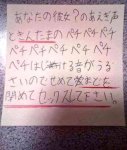 あなたの彼女?のあえぎ声
ときんたまの ペチペチ
ペチペチペチペチ ペチ
ペチはじける音がうる
さいのでせめて窓までを
閉めてセックスして下さい。